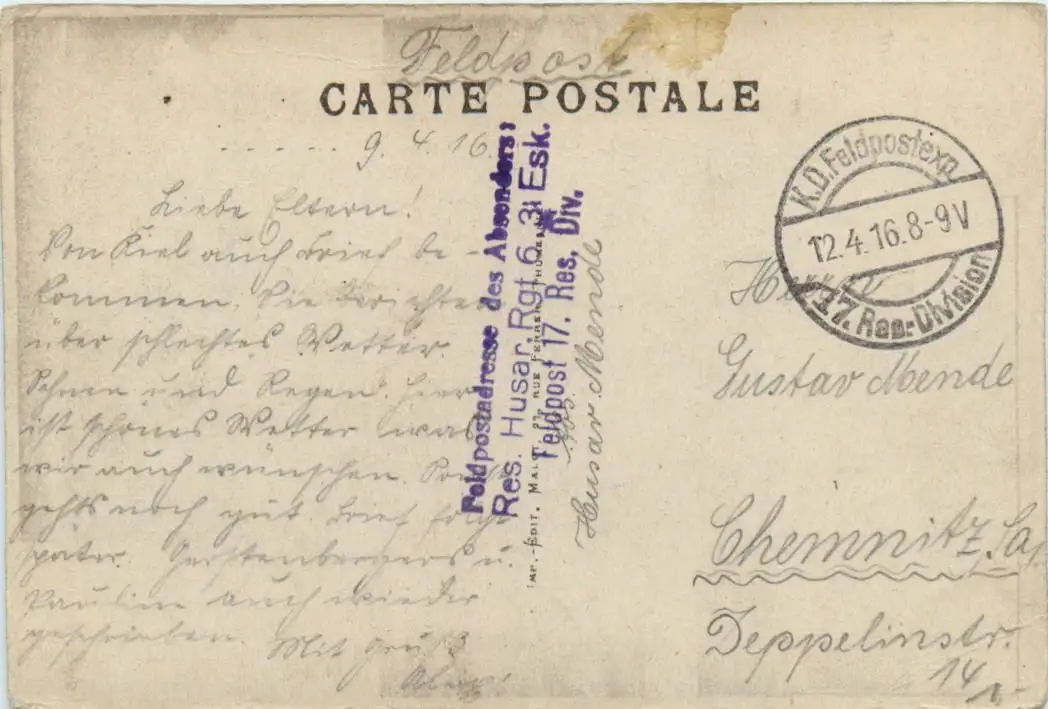 Feldpost
CARTE POSTALE
9. 4. 16.
Liebe Eltern!
Von Kiel auch Brief be-
kommen. Sie berichten
über schlechtes Wetter.
Schnee und Regen. Hier
ist schönes Wetter was
wir auch wünschen. Sonst
gehts noch gut. Brief folgt
später. Gerstenbergers u.
Pauline auch wieder
geschrieben. Mit Gruß
Feldpostadresse des Absenders:
Res. Husar. Rgt. 6, 3. Esk.
Feldpost 17. Res. Div.
Husar Mende
IMP.-EDIT. RUE
K.D.Feldpostexp.
12.4.16.8-9V
17. Res.-Division
Herrn
Gustav Mende
Chemnitz. Sa.
Zeppelinstr.
14